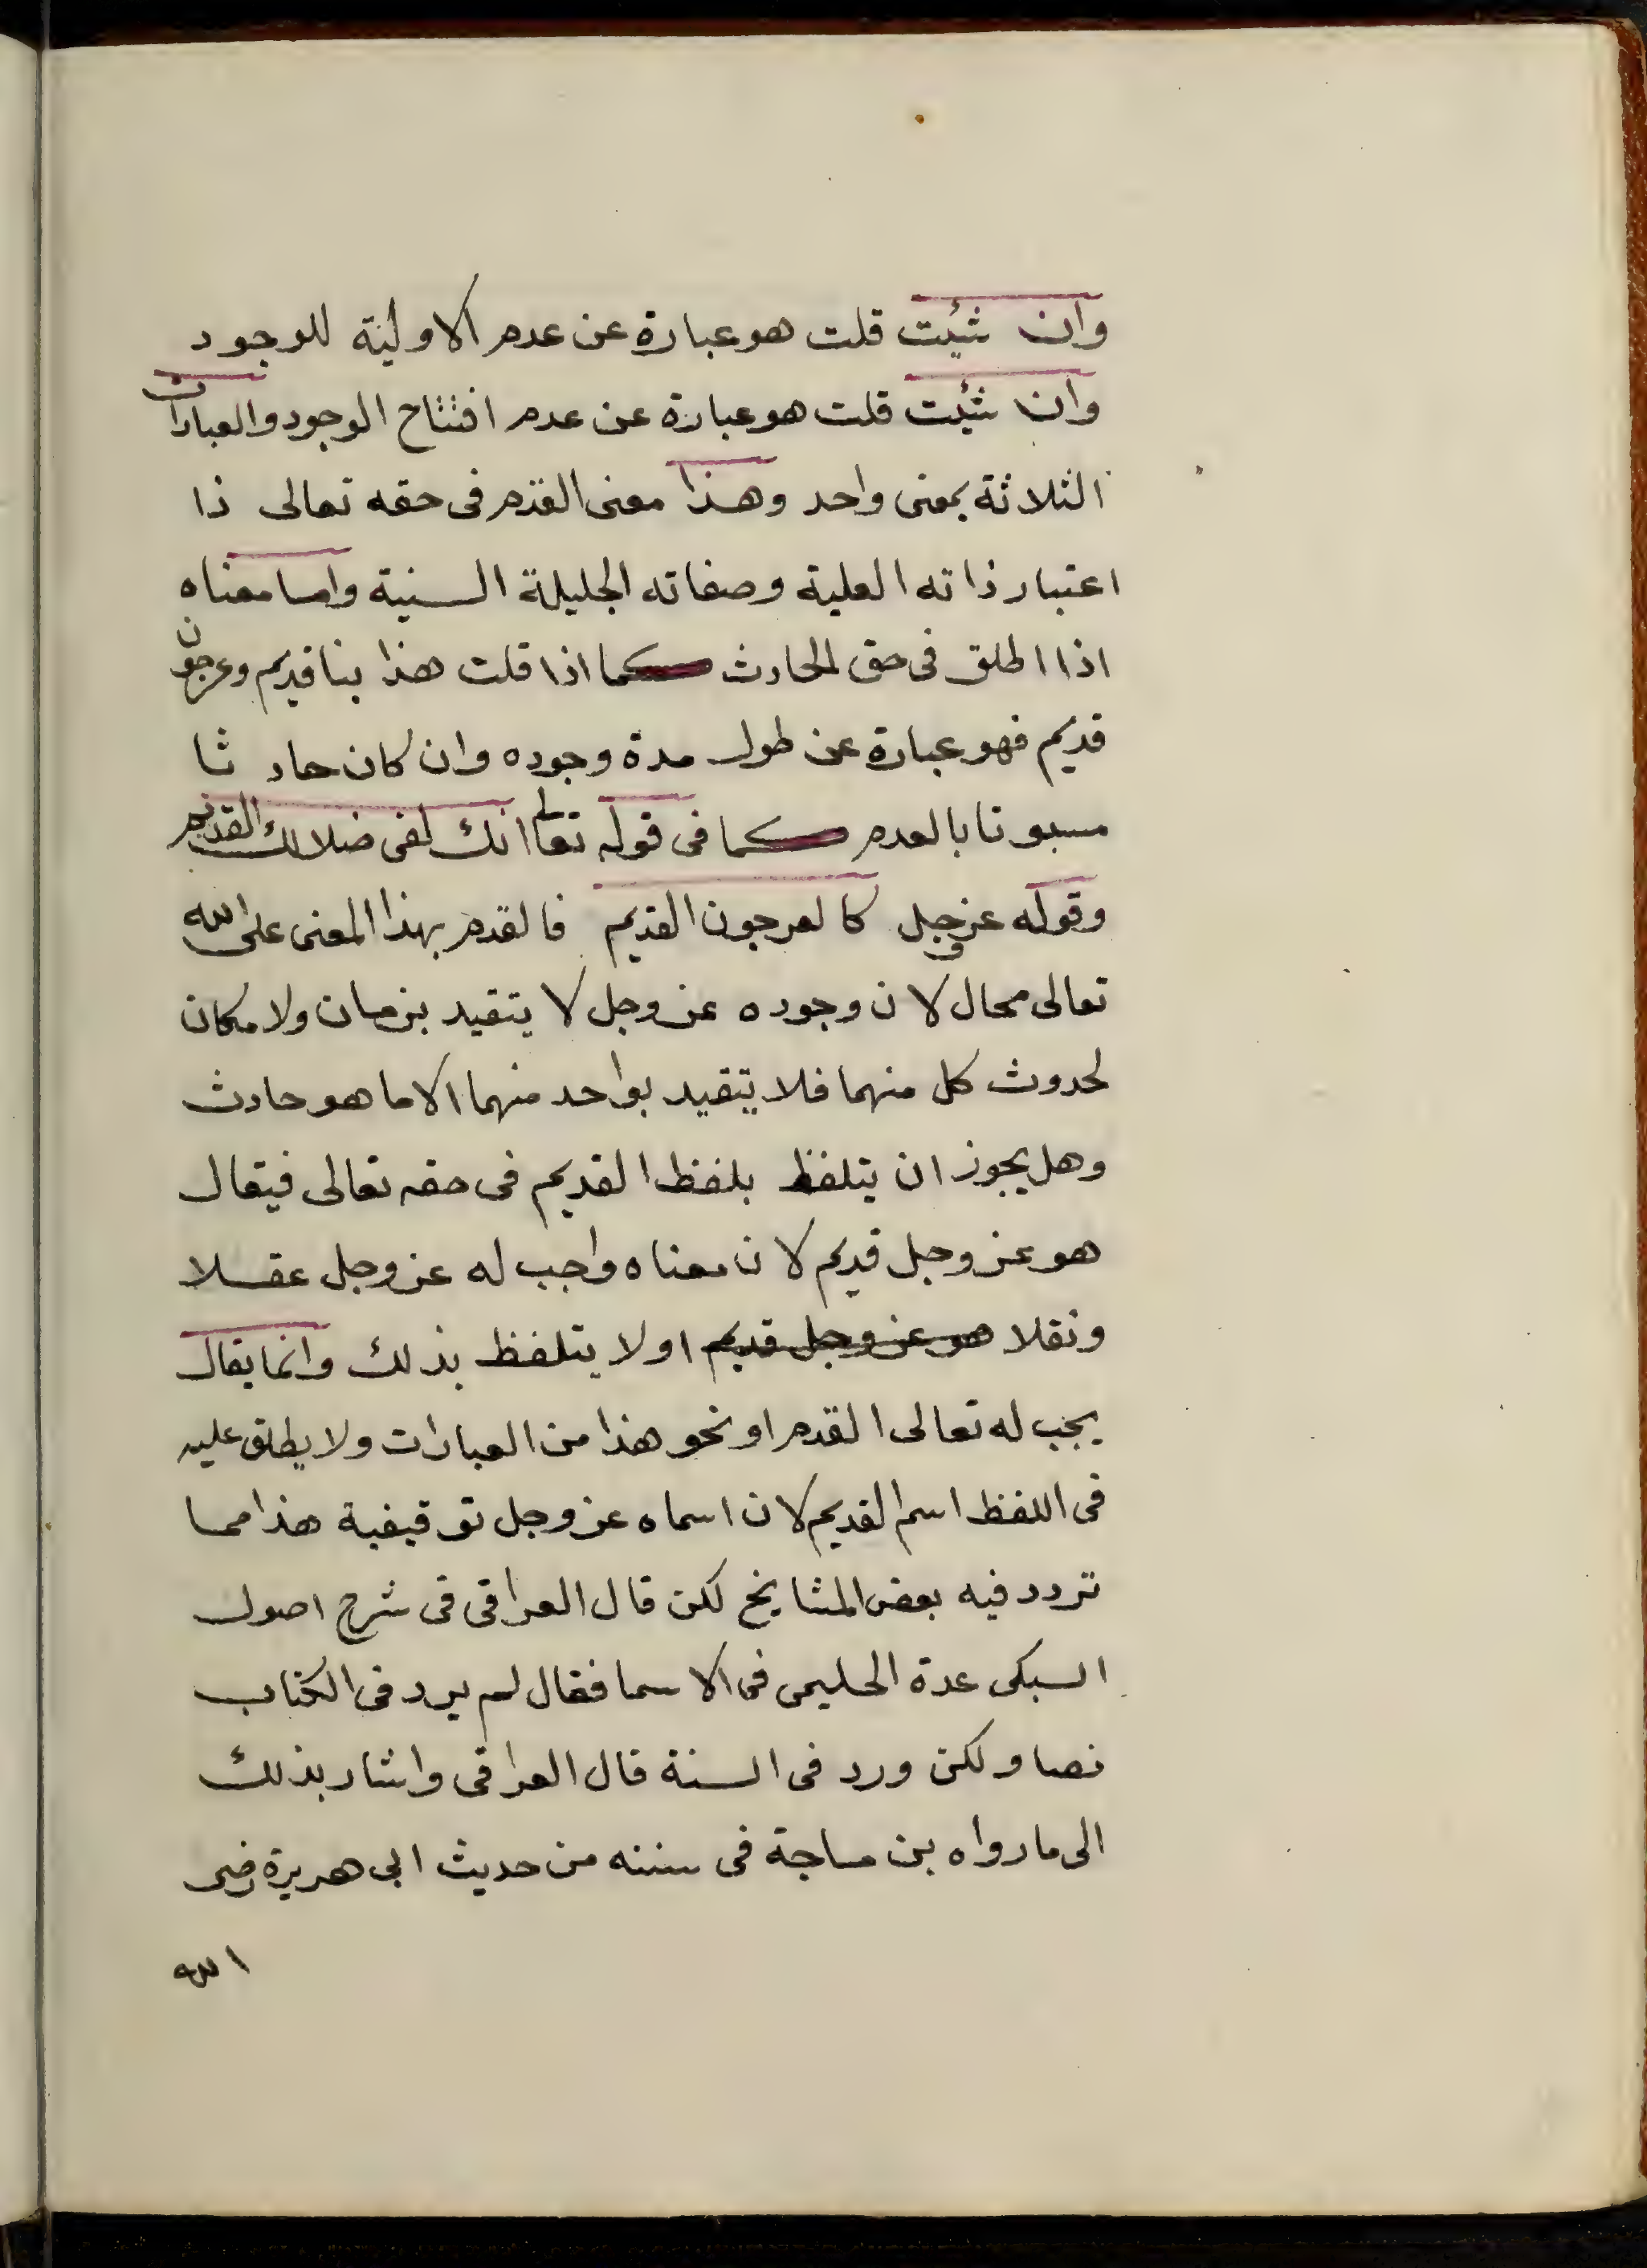 وان شئت قلت هو عبارة عن عدم الاولية للوجود
وان شئت قلت هو عبارة عن عدم افتتاح الوجود والعبارات
الثلاثة بمعنى واحد وهذا معنى القدم فى حقه تعالى ذا
اعتبار ذاته العلية وصفاته الجليلة السنية واما معناه
اذا اطلق فى حق الحادث كما اذا قلت هذا بنا قديم وعرجون
قديم فهو عبارة عن طول مدة وجوده وان كان حادثا
مسبوقا بالعدم كما فى قوله تعالى انك لفى ضلالك القديم
وقوله عز وجل كالعرجون القديم فالقدم بهذا المعنى على الله
تعالى محال لان وجوده عز وجل لا يتقيد بزمان ولا مكان
لحدوث كل منهما فلا يتقيد بواحد منهما الا ما هو حادث
وهل يجوز ان يتلفظ بلفظ القديم فى حقه تعالى فيقال
هو عز وجل قديم لان معناه واجب له عز وجل عقلا
ونقلا هو عز وجل قديم او لا يتلفظ بذلك وانما يقال
يجب له تعالى القدم او نحو هذا من العبارات ولا يطلق عليه
فى اللفظ اسم القديم لان اسماه عز وجل توقيفية هذا مما
تردد فيه بعض المشايخ لكن قال العراقى فى شرح اصول
السبكى عدة الحليمى فى الاسما فقال لم يرد فى الكتاب
نصا ولكن ورد فى السنة قال العراقى واشار بذلك
الى ما رواه بن ماجة فى سننه من حديث ابى هريرة رضى
الله